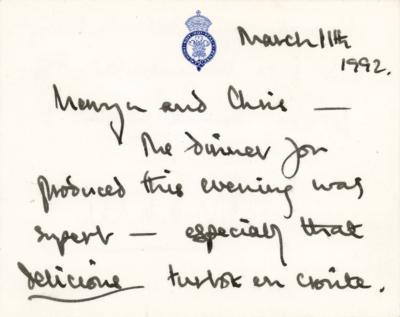 March 11th
1992.
Mervyn and Chris —
The dinner you
produced this evening was
superb — especially that
delicious turbot en croûte.